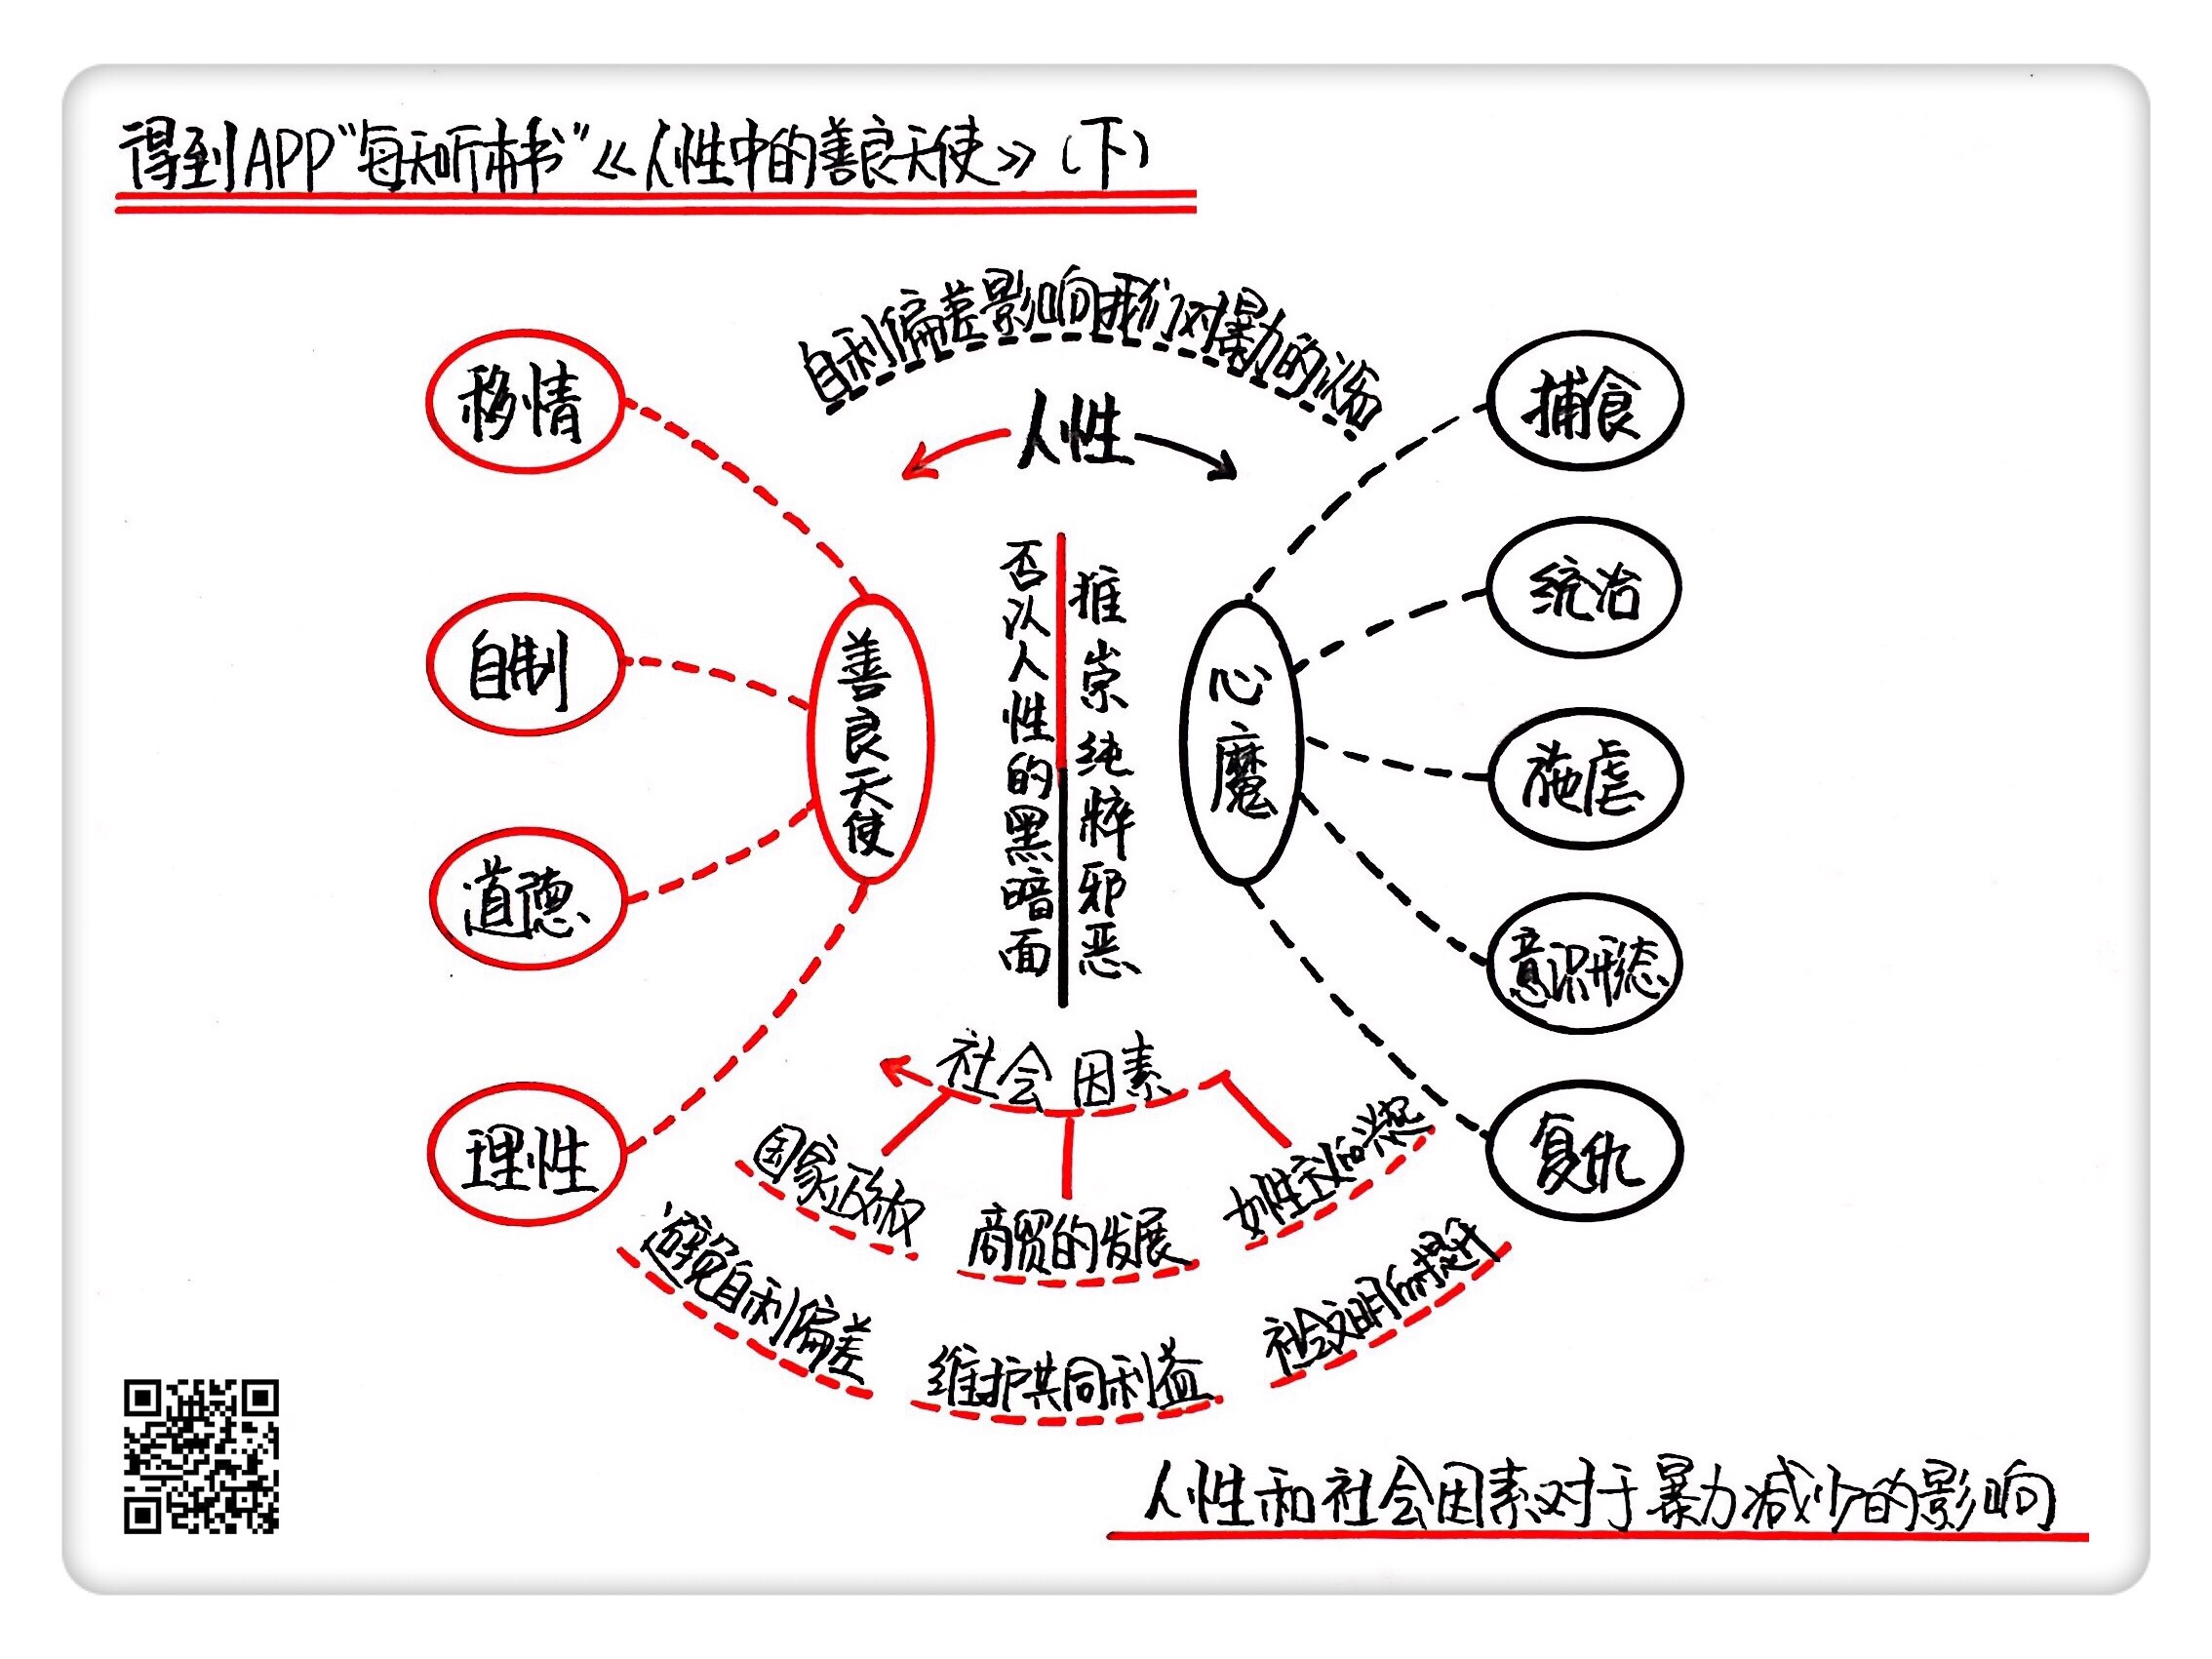 得到APP“每天听本书”《人性中的善良天使》（下）
自利偏差影响我们对暴力的认知
人性
移情
自制
道德
理性
善良天使
否认人性的黑暗面
推崇纯粹邪恶
心魔
捕食
统治
施虐
意识形态
复仇
社会因素
国家政权
商贸的发展
女性主义的兴起
避免自利偏差
维护共同利益
社会文明的提升
人性和社会因素对于暴力减少的影响